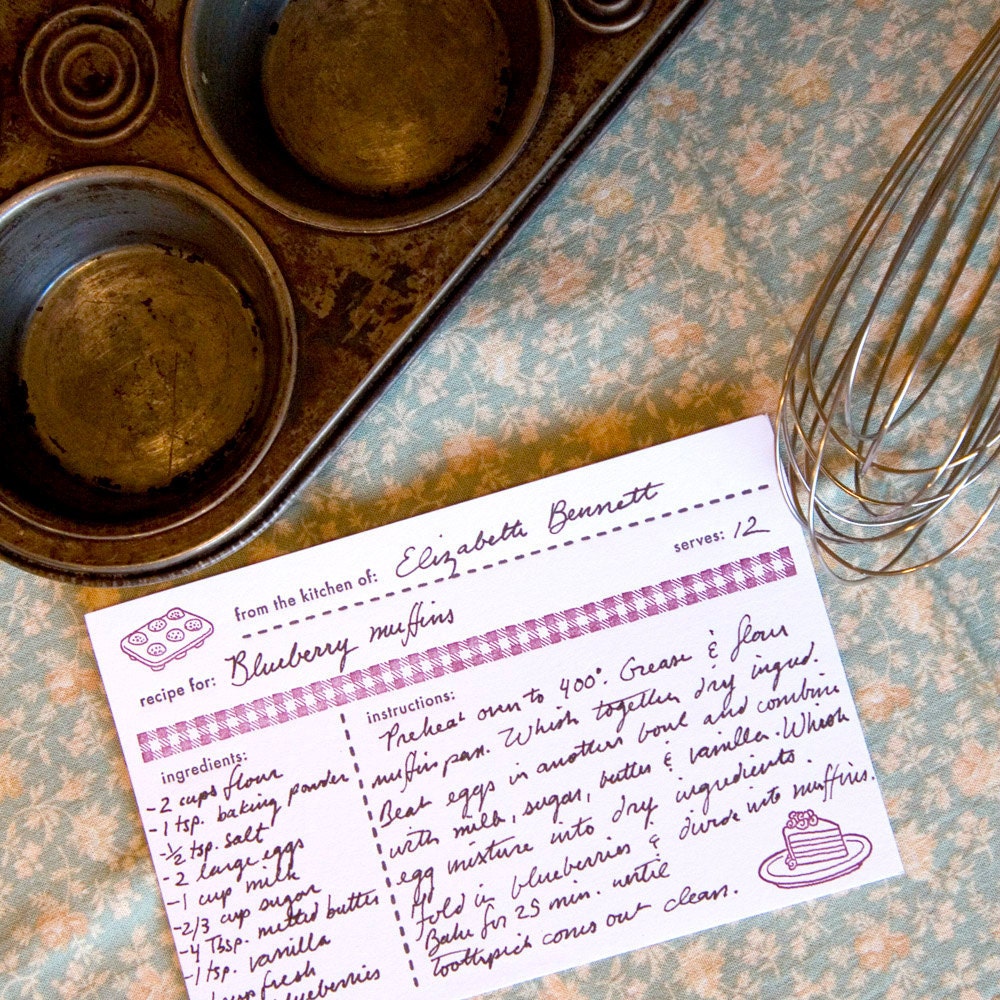 from the kitchen of: Elizabeth Bennett
serves: 12
recipe for: Blueberry muffins
ingredients:
-2 cups flour
-1 tsp. baking powder
-½ tsp. salt
-2 large eggs
-1 cup milk
-2/3 cup sugar
-4 Tbsp. melted butter
-1 tsp. vanilla
cup fresh
blueberries
instructions:
Preheat oven to 400°. Grease & flour
muffin pan. Whisk together dry ingred.
Beat eggs in another bowl and combine
with milk, sugar, butter & vanilla. Whisk
egg mixture into dry ingredients.
Fold in blueberries & divide into muffins.
Bake for 25 min. until
toothpick comes out clean.